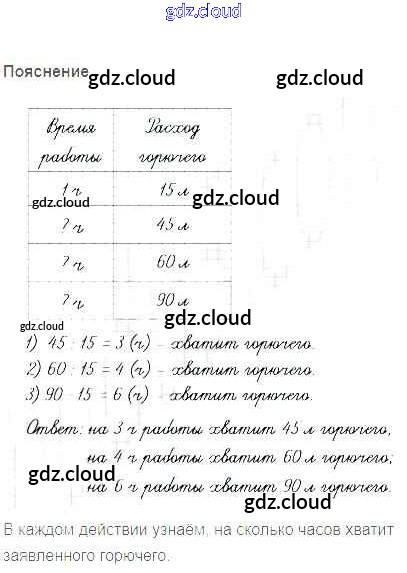 gdz.cloud
Пояснение
gdz.cloud gdz.cloud
Время Расход
работы горючего
1 ч 15 л
gdz.cloud gdz.cloud
? ч 45 л
? ч 60 л
? ч 90 л
gdz.cloud
gdz.cloud
1) 45 : 15 = 3 (ч) – хватит горючего.
2) 60 : 15 = 4 (ч) – хватит горючего.
gdz.cloud gdz.cloud
3) 90 : 15 = 6 (ч) – хватит горючего.
Ответ: на 3 ч работы хватит 45 л горючего,
на 4 ч работы хватит 60 л горючего;
gdz.cloud
на 6 ч работы хватит 90 л горючего.
gdz.cloud
В каждом действии узнаём, на сколько часов хватит
заявленного горючего.
gdz.cloud